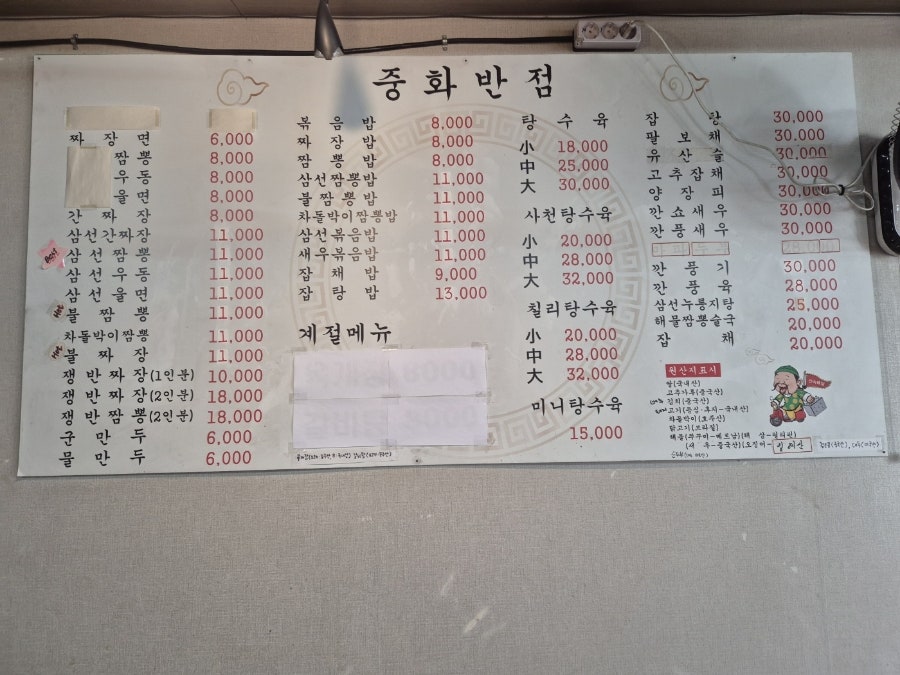 중화반점
짜장면 6,000
짬뽕 8,000
우동 8,000
울면 8,000
간짜장 8,000
삼선간짜장 11,000
삼선짬뽕 11,000
삼선우동 11,000
삼선울면 11,000
불짬뽕 11,000
차돌박이짬뽕 11,000
불짜장 11,000
쟁반짜장(1인분) 10,000
쟁반짜장(2인분) 18,000
쟁반짬뽕(2인분) 18,000
군만두 6,000
물만두 6,000
볶음밥 8,000
짜장밥 8,000
짬뽕밥 8,000
삼선짬뽕밥 11,000
불짬뽕밥 11,000
차돌박이짬뽕밥 11,000
삼선볶음밥 11,000
새우볶음밥 11,000
잡채밥 9,000
잡탕밥 13,000
계절메뉴
탕수육
小 18,000
中 25,000
大 30,000
사천탕수육
小 20,000
中 28,000
大 32,000
칠리탕수육
小 20,000
中 28,000
大 32,000
미니탕수육
15,000
잡탕 30,000
팔보채 30,000
유산슬 30,000
고추잡채 30,000
양장피 30,000
깐쇼새우 30,000
깐풍새우 30,000
깐풍기 30,000
깐풍육 28,000
삼선누룽지탕 25,000
해물짬뽕술국 20,000
잡채 20,000
원산지표시
쌀(국내산)
고추가루(중국산)
김치(중국산)
고기(등심·후지-국내산)
차돌박이(호주산)
닭고기(브라질)